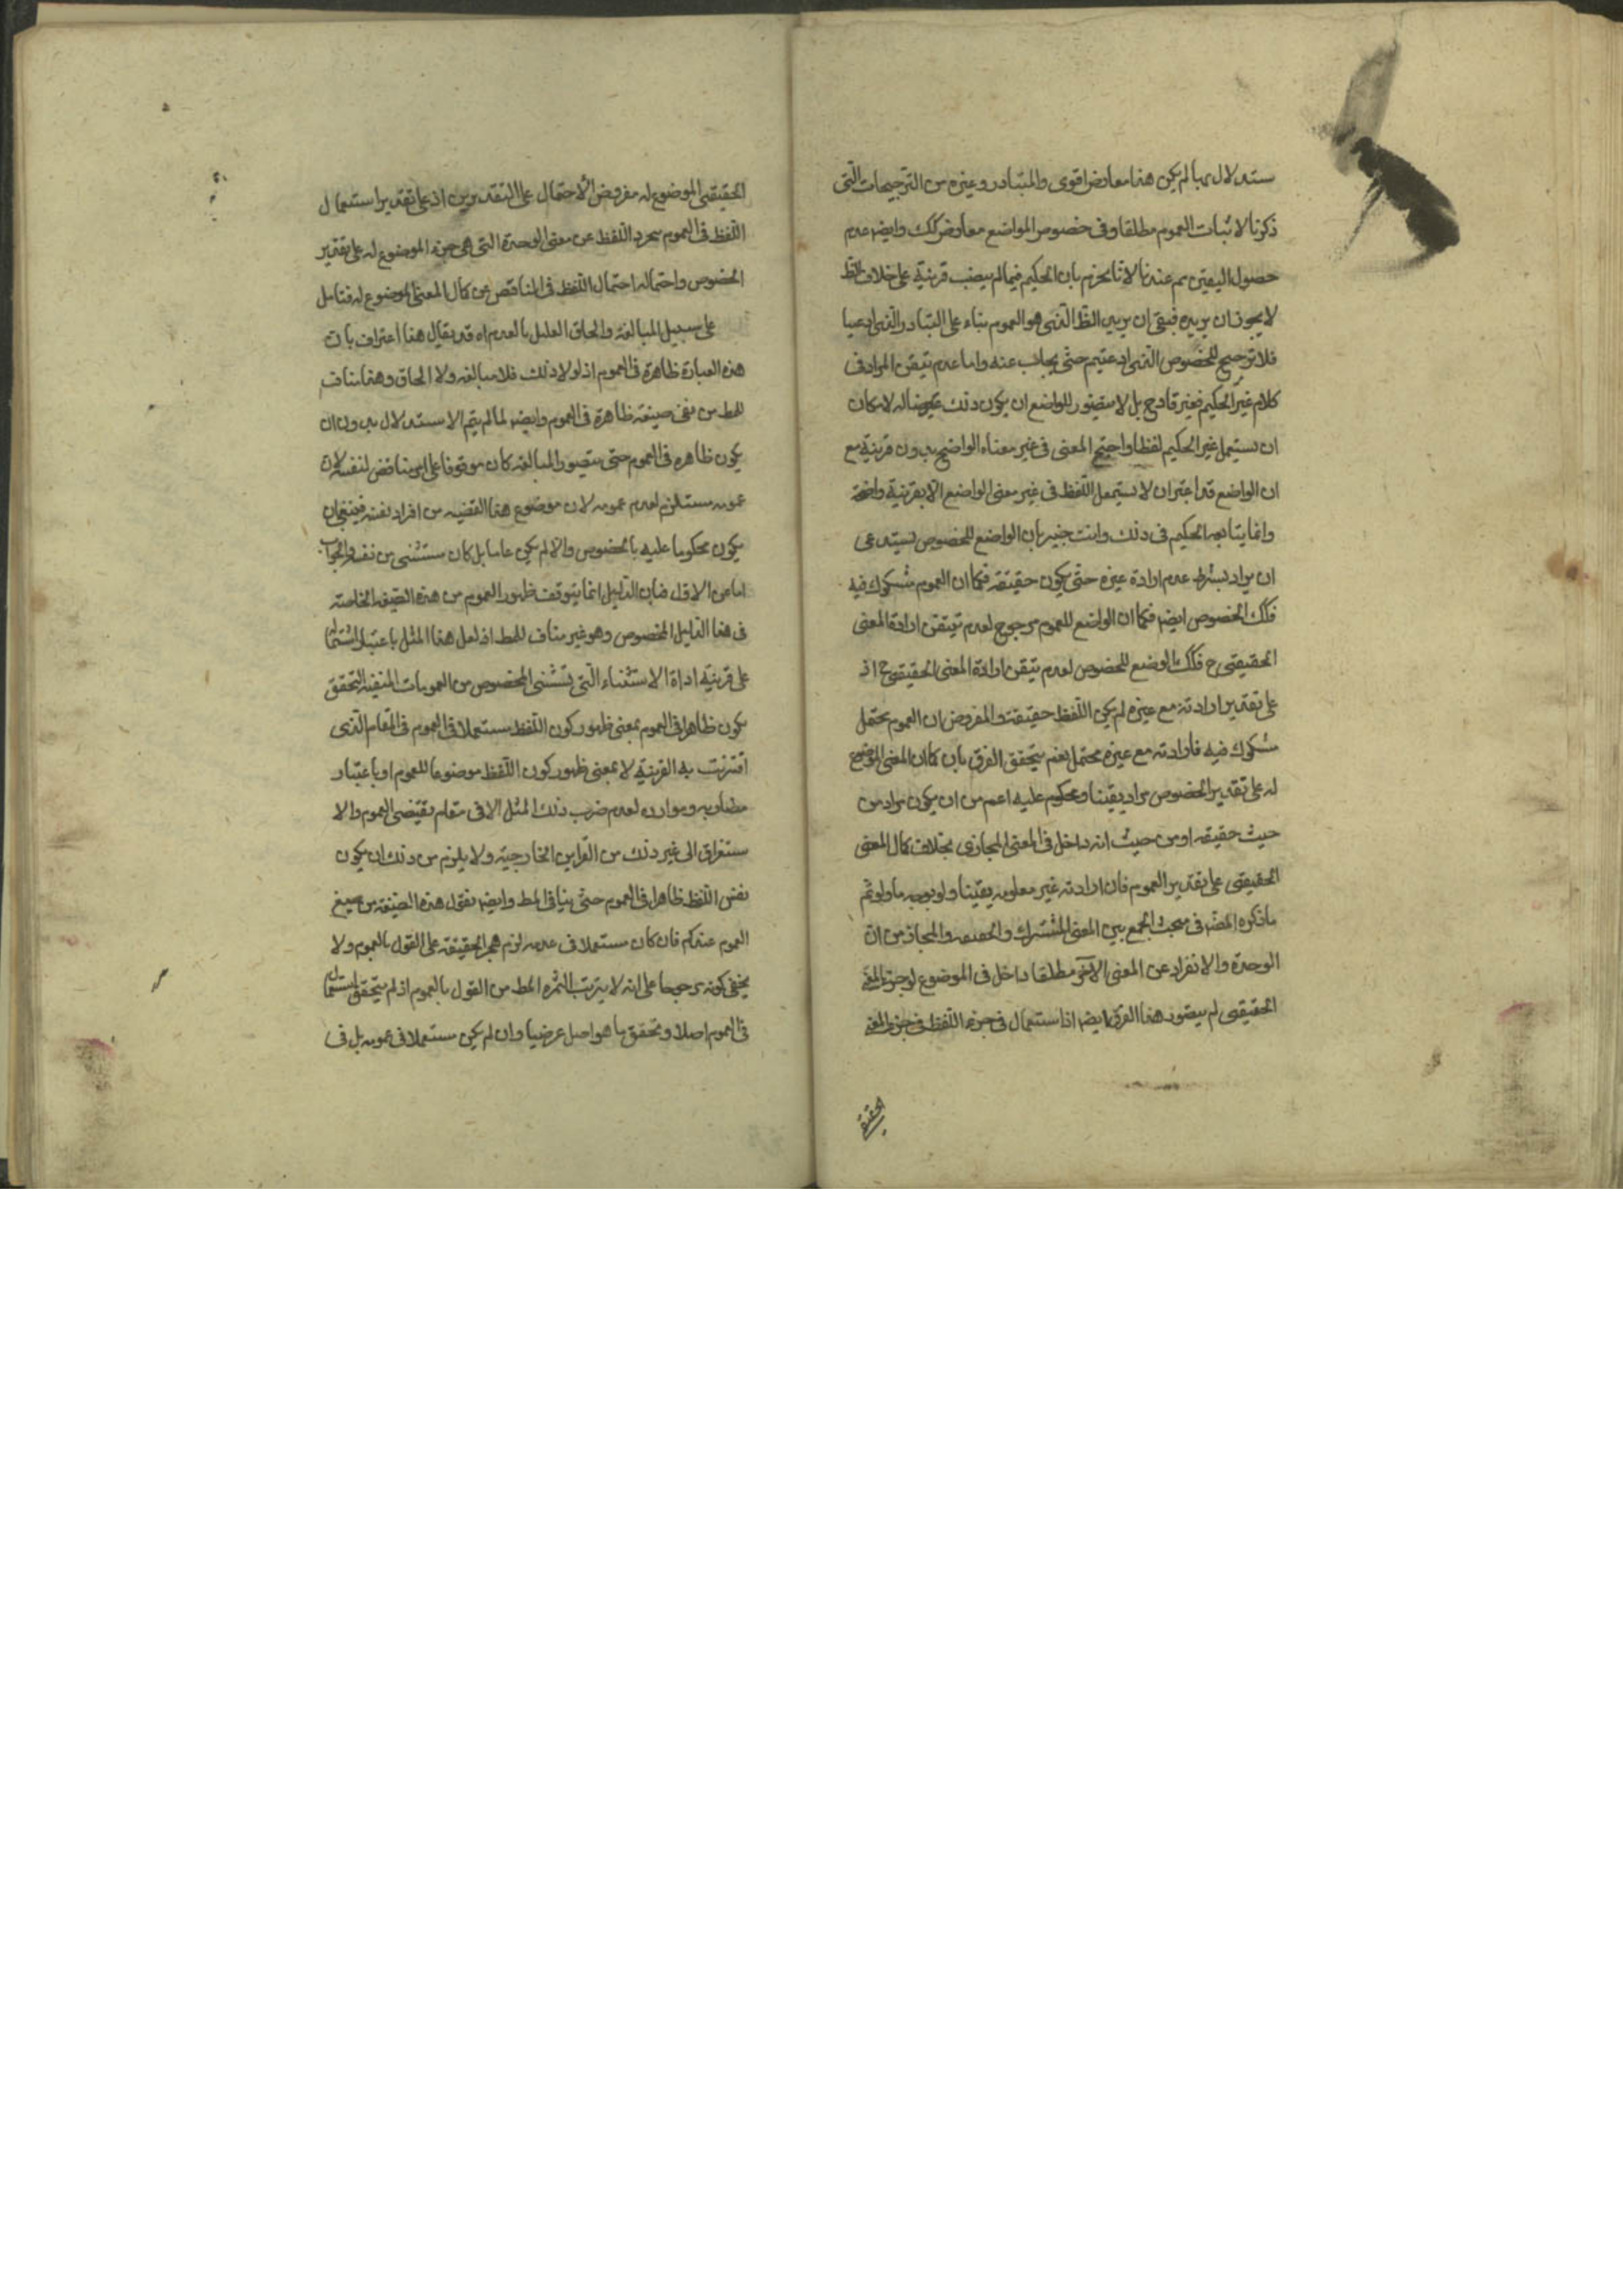 ستدلال بها لم يكن هذا معارض اقوى والمتبادر وغيره من الترجيحات التى
ذكرنا لاثبات العموم مطلقا وفى خصوص المواضع معارض كك وايضا عدم
حصول اليقين مم عندنا لانا نجزم بان الحكيم فيما لم ينصب قرينة على خلاف الظ
لا يجوز ان يريده فبقى ان يريد الظ الذى هو العموم بناء على التبادر الذى ادعينا
فلا ترجيح للخصوص الذى ادعيتم حتى يجاب عنه واما عدم تيقن المراد فى
كلام غير الحكيم فغير قادح بل لا يتصور للواضع ان يكون ذلك غرضا له لامكان
ان يستعمل غير الحكيم لفظا واضح المعنى فى غير معناه الواضح بدون قرينة مع
ان الواضع قد اعتبر ان لا يستعمل اللفظ فى غير معنى الواضع الا بقرينة واضحة
وانما يتابعه الحكيم فى ذلك وانت خبير بان الواضع للخصوص يستدعى
ان يراد بشرط عدم ارادة غيره حتى يكون حقيقة فكما ان العموم مشكوك فيه
فكك الخصوص ايضا فكما ان الواضع للعموم مرجوح لعدم تيقن ارادة المعنى
الحقيقى ح فكك الوضع للخصوص لعدم تيقن ارادة المعنى الحقيقى ح اذ
على تقدير ارادته مع غيره لم يكن اللفظ حقيقة والمفروض ان العموم محتمل
مشكوك فيه فارادته مع غيره محتمل نعم يتحقق الفرق بان كان المعنى الموضوع
له على تقدير الخصوص مراد يقينا ومحكوم عليه اعم من ان يكون مراد من
حيث حقيقة او من حيث انه داخل فى المعنى المجازى بخلاف كمال المعنى
الحقيقى على تقدير العموم فان ارادته غير معلومه يقينا ولو بوجه ما ولو تم
ما ذكره المص فى مبحث الجمع بين المعنى المشترك والحقيقه والمجاز من ان
الوحدة والانفراد عن المعنى الآخر مطلقا داخل فى الموضوع له
الحقيقى لم يتصور هذا الفرق ايضا اذ استعمال اللفظ فى جزء المعنى
الحقيقى
الحقيقى الموضوع له مفروض الاحتمال على التقديرين اذ على تقدير استعمال
اللفظ فى العموم يجرد اللفظ عن معنى الوحدة التى هى جزء الموضوع له على تقدير
الخصوص واحتماله احتمال اللفظ فى الناقص عن كمال المعنى الموضوع له فتامل
على سبيل المبالغة والحاق القليل بالعدم اه قد يقال هذا اعتراف بان
هذه العبارة ظاهرة فى العموم اذ لولا ذلك فلا مبالغه ولا الحاق وهذا مناف
للمط من نفى صيغه ظاهرة فى العموم وايضا لما لم يتم الاستدلال بدون ان
يكون ظاهره فى العموم حتى يتصور المبالغه كان موقوفا على امر يناقض لنفسه لان
عمومه مستلزم لعدم عمومه لان موضوع هذا القضيه من افراد نفسه فينبغى ان
يكون محكوما عليه بالخصوص والا لم يكن عاما بل كان مستثنى من نفسه والجواب
اما عن الاول فبان الدليل انما يتوقف ظهور العموم من هذه الصيغه الخاصة
فى هذا الدليل المخصوص وهو غير مناف للمط اذ لعل هذا المثل باعتبار اشتماله
على قرينة اداة الاستثناء التى يستثنى المخصوص من العمومات المنفية التحقق
يكون ظاهرا فى العموم بمعنى ظهور كون اللفظ مستعملا فى العموم فى المقام الذى
اقترنت به القرينة لا بمعنى ظهور كون اللفظ موضوعا للعموم او باعتبار
مضاربه وموارده لعدم ضرب ذلك المثل الا فى مقام يقتضى العموم والا
ستغراق الى غير ذلك من القراين الخارجية ولا يلزم من ذلك ان يكون
نفس اللفظ ظاهرا فى العموم حتى ينافى المط وايضا نقول هذه الصيغه من صيغ
العموم عندكم فان كان مستعملا فى عدمه لزم هجر الحقيقه على القول بالعموم ولا
يخفى كونه مرجوحا على انه لا يترتب الثمره المط من القول بالعموم اذ لم يتحقق استعمال
فى العموم اصلا وتحقق ما هو اصل عرضيا وان لم يكن مستعملا فى عمومه بل فى